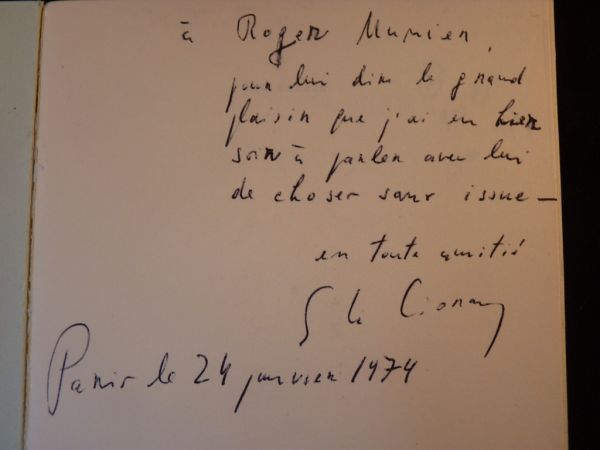 à Roger Munier,
pour lui dire le grand
plaisir que j'ai eu hier
soir à parler avec lui
de choses sans issue —
en toute amitié
Cioran
Paris le 24 janvier 1974